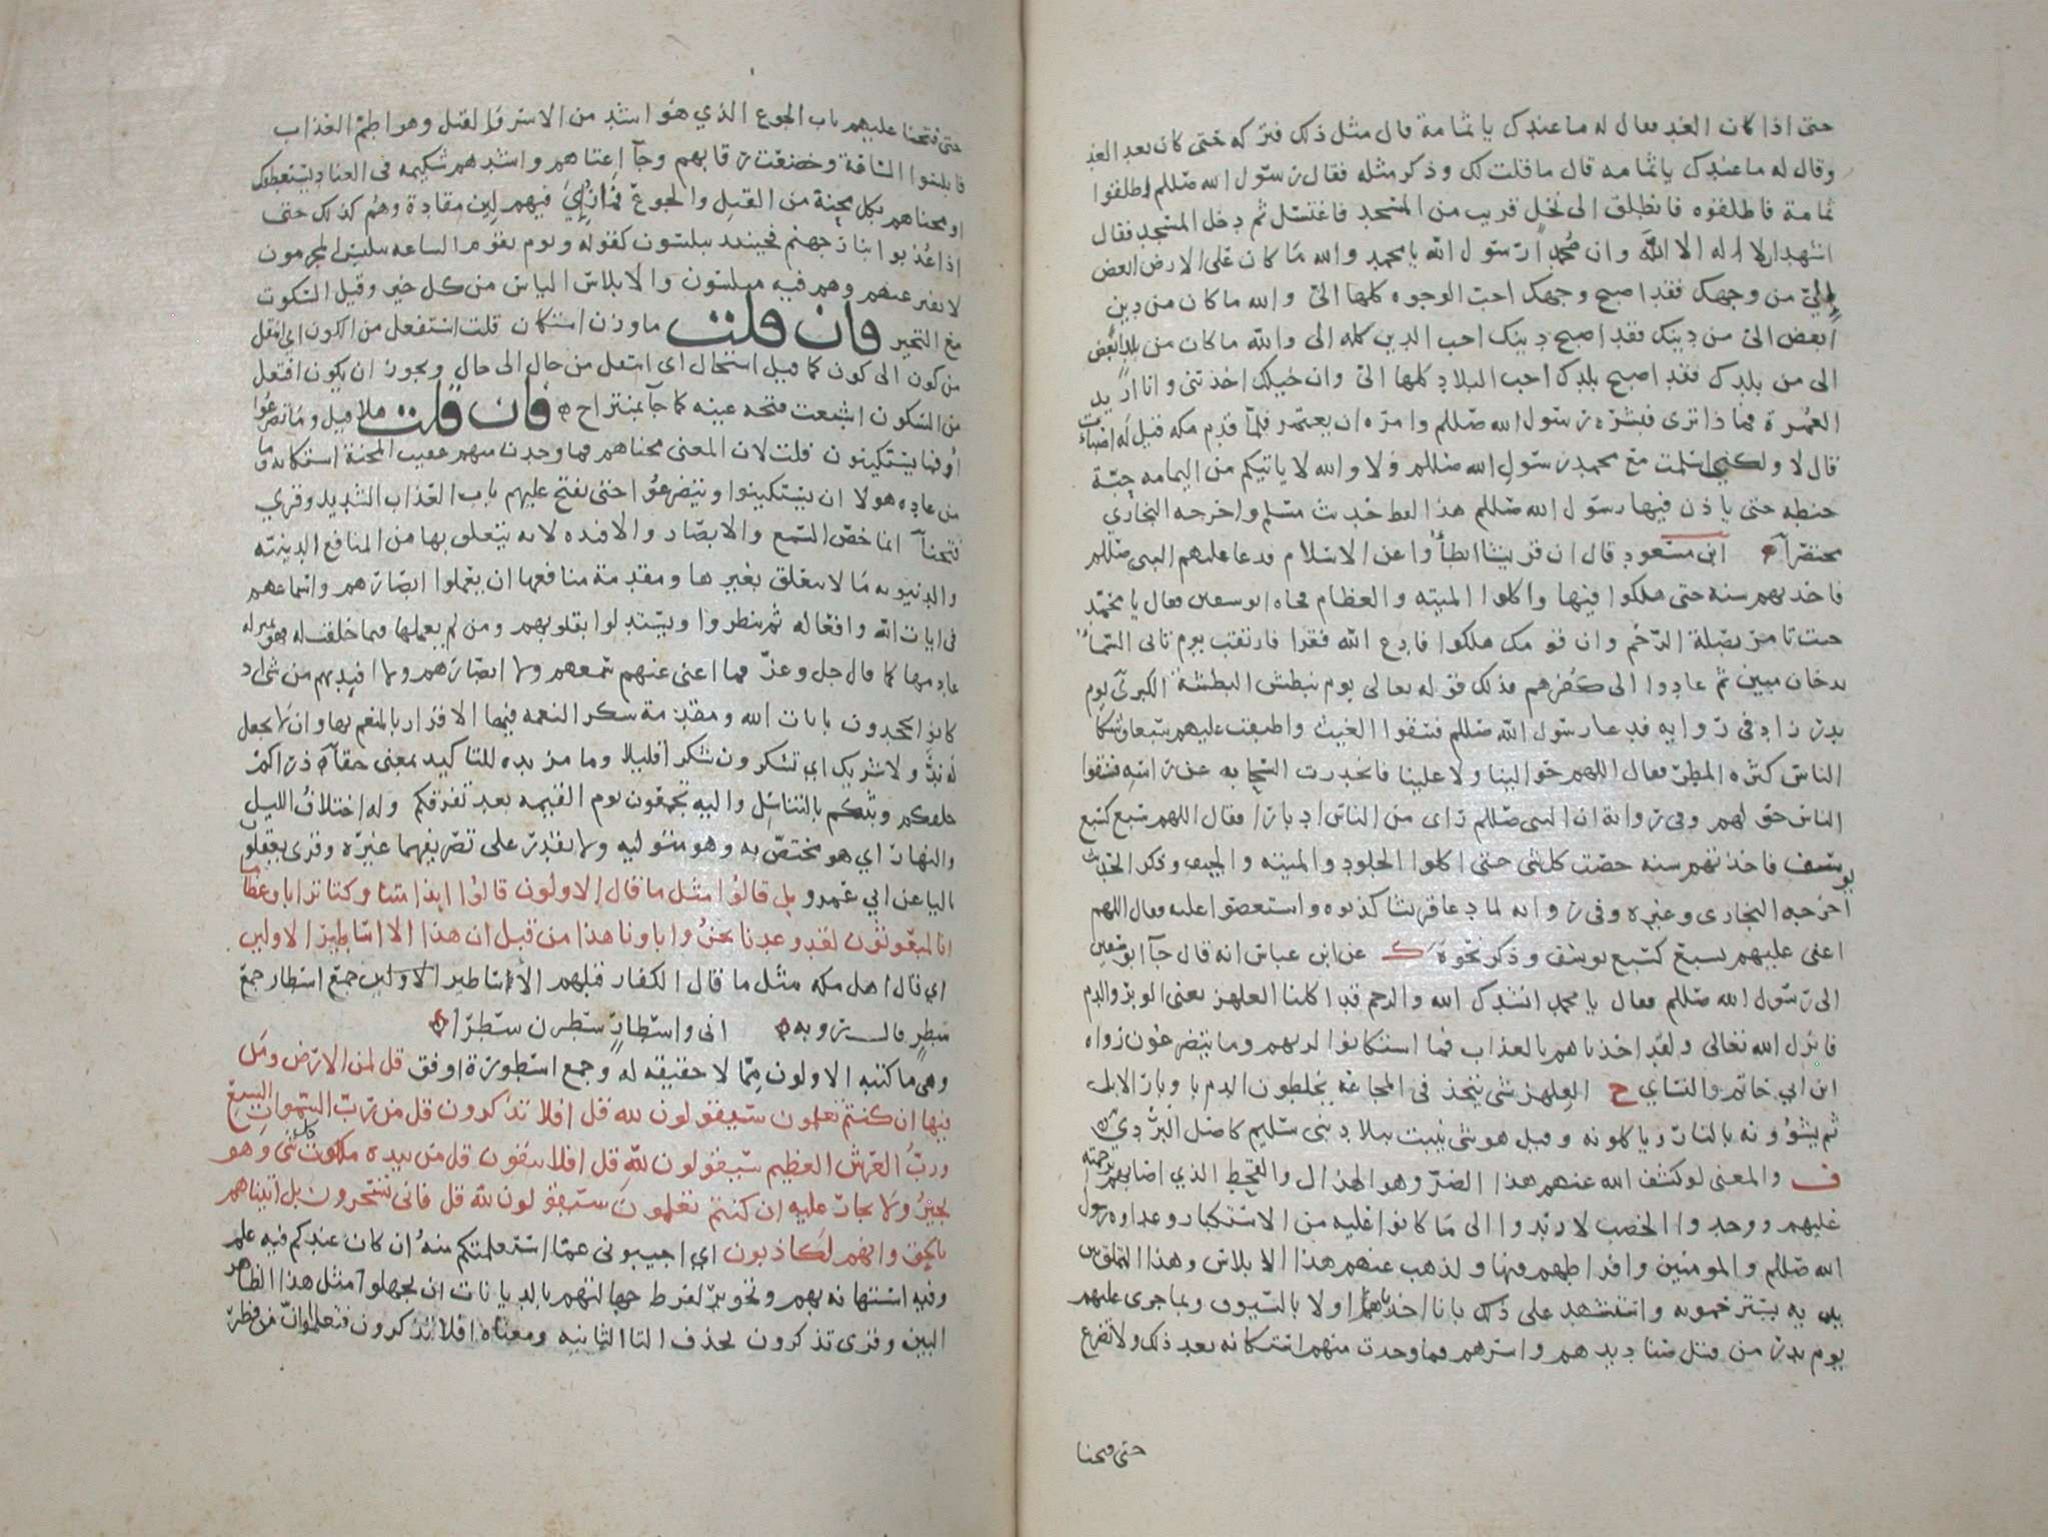 حتى اذا كان الغد فقال له ما عندك يا ثمامة قال مثل ذلك فتركه حتى كان بعد الغد
وقال له ما عندك يا ثمامه قال ما قلت لك وذكر مثله فقال رسول الله صللم اطلقوا
ثمامة فاطلقوه فانطلق الى نخل قريب من المسجد فاغتسل ثم دخل المسجد فقال
اشهد ان لا اله الا الله وان محمدا رسول الله يا محمد والله ما كان على الارض ابغض
الي من وجهك فقد اصبح وجهك احب الوجوه كلها الي والله ما كان من دين
ابغض الي من دينك فقد اصبح دينك احب الدين كله الي والله ما كان من بلد ابغض
الى من بلدك فقد اصبح بلدك احب البلاد كلها الي وان خيلك اخذتني وانا اريد
العمرة فماذا ترى فبشره رسول الله صللم وامره ان يعتمر فلما قدم مكه قيل له اصبات
قال لا ولكني اسلمت مع محمد رسول الله صللم ولا والله لا ياتيكم من اليمامه حبة
حنطه حتى ياذن فيها رسول الله صللم هذا لفظ حديث مسلم واخرجه البخاري
مختصرا ابن مسعود قال ان قريشا ابطأوا عن الاسلام فدعا عليهم النبي صللم
فاخذتهم سنة حتى هلكوا فيها واكلوا الميته والعظام فجاه ابو سفين فقال يا محمد
جئت تامر بصلة الرحم وان قومك هلكوا فادع الله فقرا فارتقب يوم تاتي السماء
بدخان مبين ثم عادوا الى كفرهم فذلك قوله تعالى يوم نبطش البطشة الكبرى يوم
بدر زاد في روايه فدعا رسول الله صللم فسقوا الغيث واطبقت عليهم سبعا وشكا
الناس كثره المطر فقال اللهم حوالينا ولا علينا فانحدرت السحابه عن راسه فسقوا
الناس حولهم وفي رواية ان النبي صللم راى من الناس ادبارا فقال اللهم سبع كسبع
يوسف فاخذتهم سنه حصت كل شي حتى اكلوا الجلود والميته والجيف وذكر الحديث
اخرجه البخاري وغيره وفي روايه لما دعا قريشا كذبوه واستعصوا عليه فقال اللهم
اعني عليهم بسبع كسبع يوسف وذكر نحوه ك عن ابن عباس انه قال جآ ابو سفين
الى رسول الله صللم فقال يا محمد انشدك الله والرحم قد اكلنا العلهز يعنى الوبر والدم
فانزل الله تعالى ولقد اخذناهم بالعذاب فما استكانوا لربهم وما يتضرعون رواه
ابن ابي حاتم والنساي ح العلهز شي يتخذ في المجاعه يخلطون الدم باوبار الابل
ثم يشوونه بالنار وياكلونه وقيل هو شي ينبت ببلاد بني سليم كاصل البردي
ف والمعنى لو كشف الله عنهم هذا الضر وهو الهزال والقحط الذي اصابهم برحمته
عليهم ووجدوا الخصب لارتدوا الى ما كانوا عليه من الاستكبار وعداوه رسول
الله صللم والمومنين وافراطهم فيها ولذهب عنهم هذا الابلاس وهذا التملق بين
يديه يسترحمونه واستشهد على ذلك بانا اخذناهم اولا بالسيوف وبما جرى عليهم
يوم بدر من قتل صناديدهم واسرهم فما وجدت منهم استكانه بعد ذلك ولا تضرع
حتى فتحنا
حتى فتحنا عليهم باب الجوع الذي هو اشد من الاسر والقتل وهو اطم العذاب
فابلسوا الساعة وخضعت رقابهم وجآ اعتاهم واشدهم شكيمه في العناد يستعطفك
او محناهم بكل محنة من القتل والجوع فما رؤي فيهم لين مقادة وهم كذلك حتى
اذا عذبوا بنار جهنم فحينئذ يبلسون كقوله ويوم تقوم الساعه يبلس المجرمون
لا يفتر عنهم وهم فيه مبلسون والابلاس الياس من كل خير وقيل السكوت
مع التحير فان قلت ما وزن استكان قلت استفعل من الكون اي انتقل
من كون الى كون كما قيل استحال اى انتقل من حال الى حال ويجوز ان يكون افتعل
من السكون اشبعت فتحه عينه كما جآ بمنتزاح فان قلت هلا قيل وما تضرعوا
او فما يستكينون قلت لان المعنى محناهم فما وجدت منهم عقيب المحنة استكانه وما
من عاده هولا ان يستكينوا ويتضرعوا حتى يفتح عليهم باب العذاب الشديد وقري
فتحنا انما خص السمع والابصار والافده لانه يتعلق بها من المنافع الدينيه
والدنيويه ما لا يتعلق بغيرها ومقدمة منافعها ان يعملوا ابصارهم واسماعهم
في ايات الله وافعاله ثم ينظروا ويستدلوا بقلوبهم ومن لم يعملها فيما خلقت له فهو بمنزله
عادمها كما قال جل وعز فما اغنى عنهم سمعهم ولا ابصارهم ولا افيدتهم من شي اذ
كانوا يجحدون بايات الله ومقدمة شكر النعمه فيها الاقرار بالمنعم بها وان لا يجعل
له ند ولا شريك اي تشكرون شكرا قليلا وما مزيده للتاكيد بمعنى حقا ذراكم
خلقكم وبثكم بالتناسل واليه تجمعون يوم القيمه بعد تفرقكم وله اختلاف الليل
والنهار اي هو مختص به وهو متوليه ولا يقدر على تصريفهما غيره وقرى يعقلون
باليا عن ابي عمرو بل قالوا مثل ما قال الاولون قالوا ايذا متنا وكنا ترابا وعظاما
انا لمبعوثون لقد وعدنا نحن واباونا هذا من قبل ان هذا الا اساطير الاولين
اي قال اهل مكه مثل ما قال الكفار قبلهم الاساطير الاولين جمع اسطار جمع
سطر قال رؤبه اني واسطار سطرن سطرا
وهي ما كتبه الاولون مما لا حقيقه له وجمع اسطورة اوفق قل لمن الارض ومن
فيها ان كنتم تعلمون سيقولون لله قل افلا تذكرون قل من رب السموات السبع
ورب العرش العظيم سيقولون لله قل افلا تتقون قل من بيده ملكوت كل شي وهو
يجير ولا يجار عليه ان كنتم تعلمون سيقولون لله قل فانى تسحرون بل اتيناهم
بالحق وانهم لكاذبون اي اجيبوني عما استعلمتكم منه ان كان عندكم فيه علم
وفيه استهانه بهم وتجويز لفرط جهالتهم بالديانات ان يجهلوا مثل هذا الظاهر
البين وقرى تذكرون بحذف التا الثانيه ومعناه افلا تذكرون فتعلموا ان من فطر